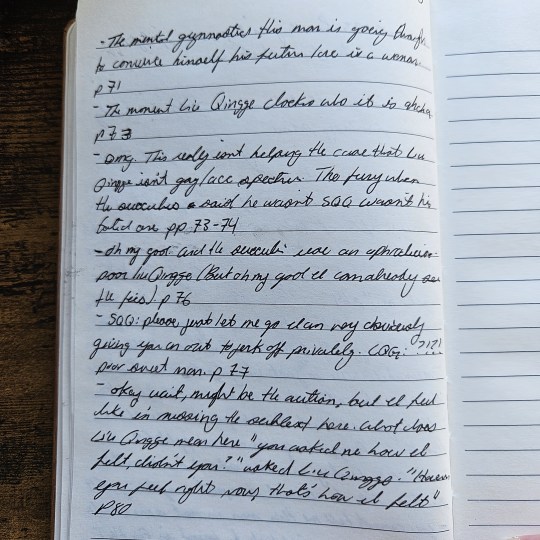 - The mental gymnastics this man is going through
to convince himself his future love is a woman
p71
- The moment Liu Qingge clocks who it is
p73
- omg. This really isn't helping the case that Liu
Qingge isn't gay/ace spectrum The fury when
the succubus said he wasn't SQQ wasn't his
fated one pp 73-74
- oh my god and the succubi use an aphrodisiac
poor Liu Qingge (But oh my god I can already see
the fics) p 76
- SQQ: please just let me go I am very obviously
giving you an out to jerk off privately. LQG: ?!?!
poor sweet man. p 77
- okay wait, might be the autism, but I feel
like I'm missing the subtext here. what does
Liu Qingge mean here "you asked me how it
felt, didn't you?" asked Liu Qingge. "However
you feel right now, that's how it felt"
p80